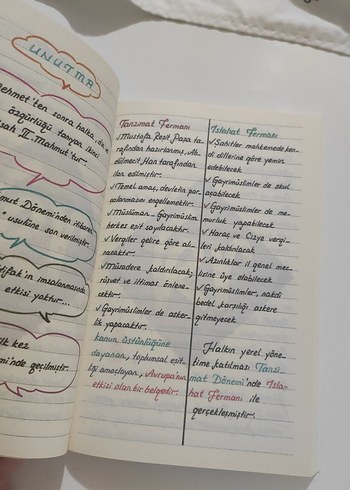 UNUTMA
ehmet'ten sonra halka, din ve
özgürlüğü tanıyan ikinci
şah II. Mahmut'tur.
mut Dönemi'nden itibaren
usulüne son verilmiştir.
tifak'ın imzalanmasında
etkisi yoktur...
ilk kez
mi'nde geçilmiştir.
Tanzimat Fermanı
✓Mustafa Reşit Paşa ta-
rafından hazırlanmış, Ab-
dülmecit Han tarafından
ilan edilmiştir.
✓Temel amaç, devletin par-
çalanmasını engellemektir.
✓Müslüman - Gayrimüslim
herkes eşit sayılacaktır.
✓Vergiler gelire göre alı-
nacaktır.
✓Müsadere kaldırılacak;
rüşvet ve iltimas önlene-
cektir.
✓Gayrimüslimler de asker-
lik yapacaktır.
kanun üstünlüğüne
dayanan, toplumsal eşit-
liği amaçlayan, Avrupa'nın
etkisi olan bir belgedir.
Islahat Fermanı
✓Şahitler mahkemede ken-
di dillerine göre yemin
edebilecek
✓Gayrimüslimler de okul
açabilecek
✓Gayrimüslimler de me-
murluk yapabilecek
✓Haraç ve Cizye vergi-
leri kaldırılacak
✓Azınlıklar il genel mec-
lisine üye olabilecek
✓Gayrimüslimler, nakdi
bedel karşılığı askere
gitmeyecek
Halkın yerel yöne-
time katılması Tanzi-
mat Dönemi'nde Isla-
hat Fermanı ile
gerçekleşmiştir.